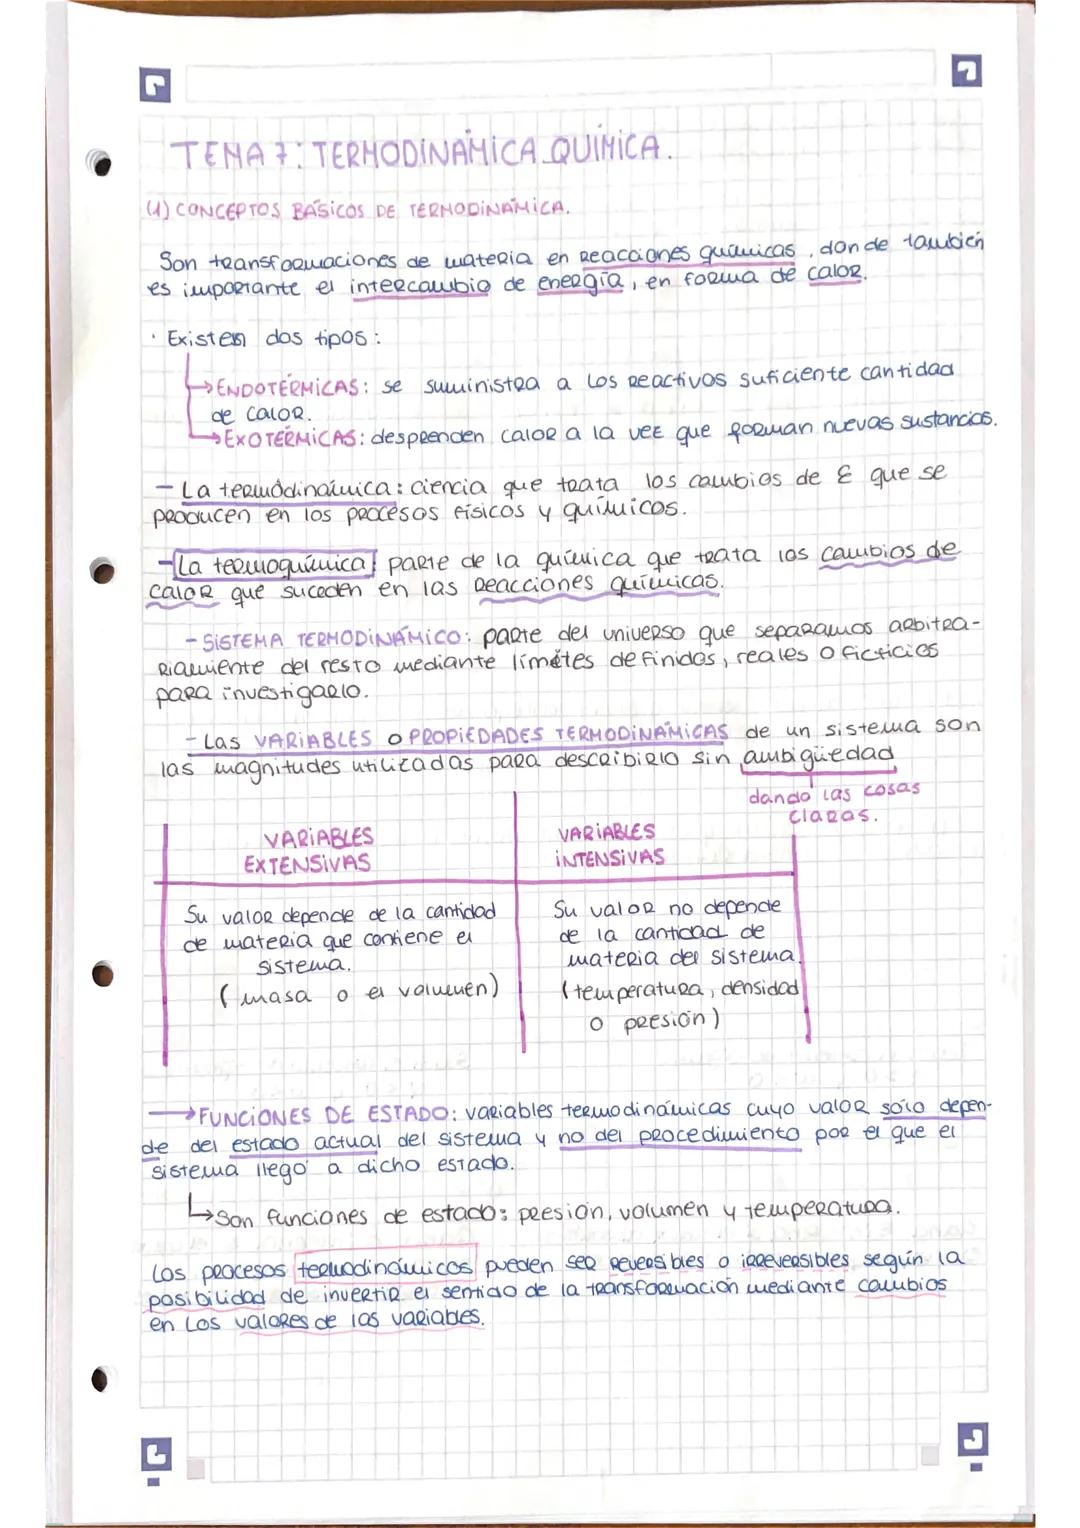 TEMA 7: TERMODINÁMICA QUÍMICA.
(1) CONCEPTOS BÁSICOS DE TERMODINÁMICA.
Son transformaciones de materia en reacciones químicas, donde también
es importante el intercambio de energía, en forma de calor.
· Existen dos tipos:
→ENDOTÉRMICAS: se suministra a los reactivos suficiente cantidad
de calor.
→EXOTÉRMICAS: desprenden calor a la vez que forman nuevas sustancias.
- La termodinámica: ciencia que trata los cambios de E que se
producen en los procesos físicos y químicos.
- La termoquímica parte de la química que trata los cambios de
calor que suceden en las reacciones químicas.
- SISTEMA TERMODINÁMICO: parte del universo que separamos arbitra-
riamiente del resto mediante límites definidos, reales o ficticies
para investigarlo.
- Las VARIABLES o PROPIEDADES TERMODINÁMICAS de un sistema son
las magnitudes utilizadas para describirlo sin ambigüedad
dando las cosas
claras.
VARIABLES
EXTENSIVAS
Su valor depende de la cantidad
de materia que contiene el
sistema.
(masa o el volumen)
VARIABLES
INTENSIVAS
Su valor no depende
de la cantidad de
materia del sistema.
(temperatura, densidad
o presión)
→FUNCIONES DE ESTADO: variables termodinámicas cuyo valor solo depen-
de del estado actual del sistema y no del procedimiento por el que el
sistema llegó a dicho estado.
→Son funciones de estado: presión, volumen y temperatura.
Los procesos termodinámicos pueden ser reversibles o irreversibles según la
posibilidad de invertir el sentido de la transformación mediante cambios
en los valores de las variables.